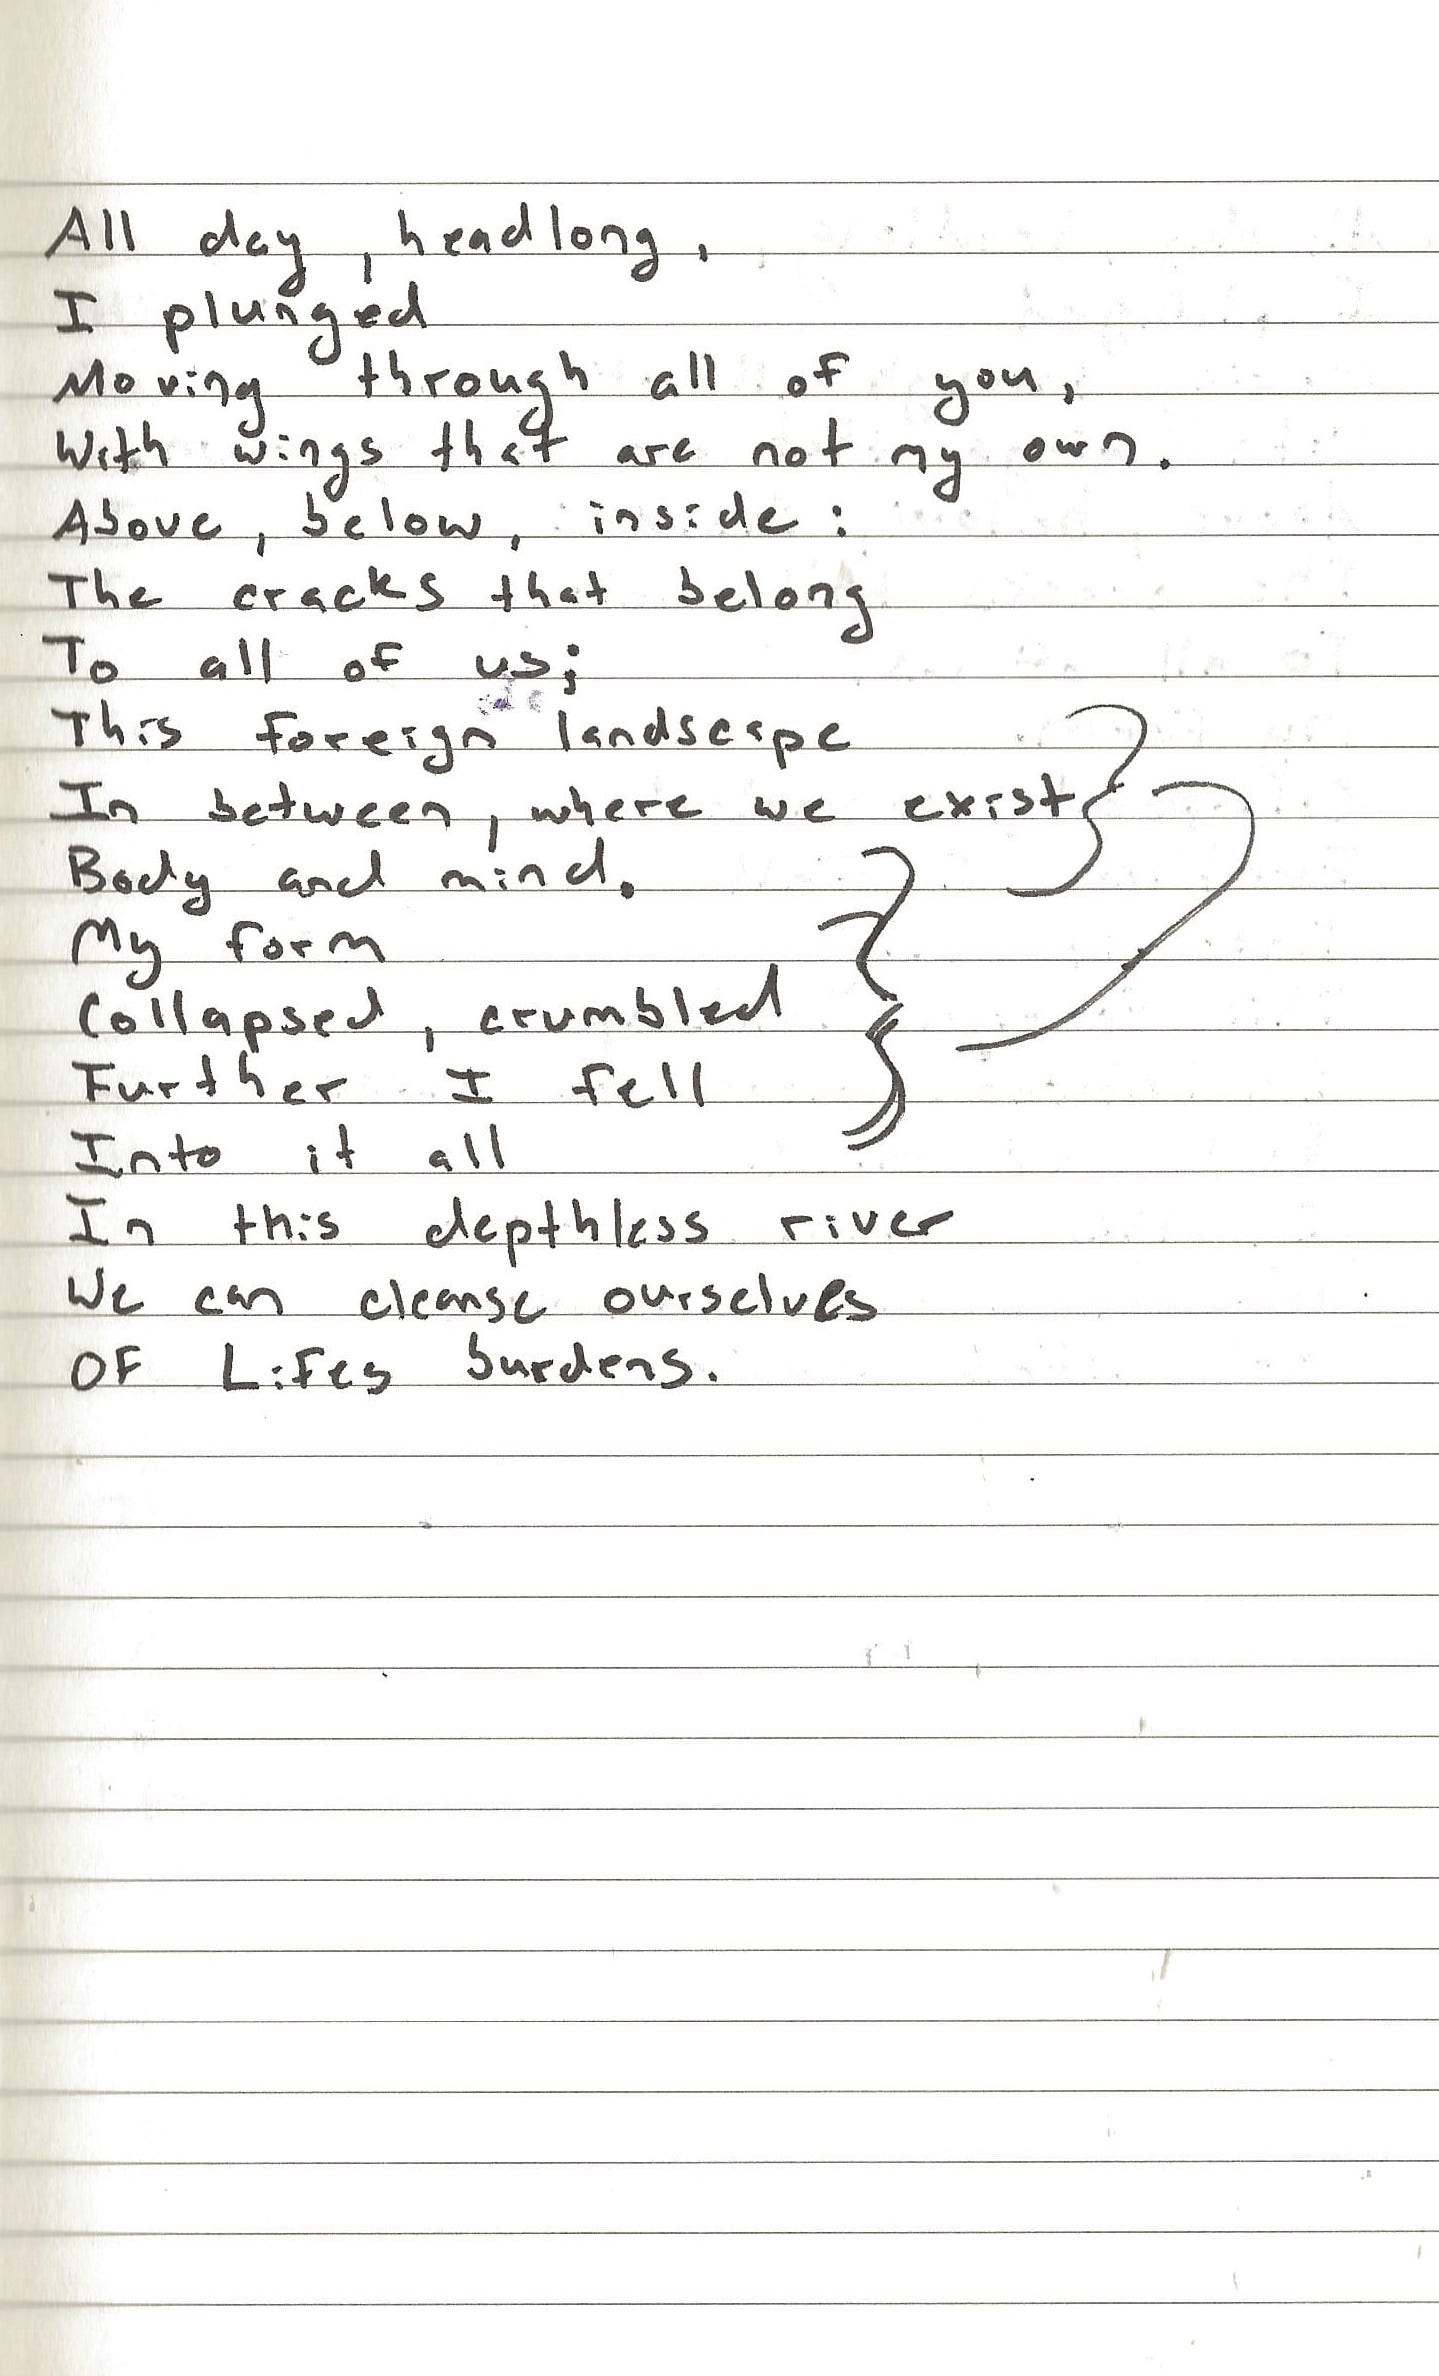 All day, headlong,
I plunged
Moving through all of you,
With wings that are not my own.
Above, below, inside:
The cracks that belong
To all of us;
This foreign landscape
In between, where we exist
Body and mind.
My form
Collapsed, crumbled
Further I fell
Into it all
In this depthless river
We can cleanse ourselves
OF Lifes burdens.